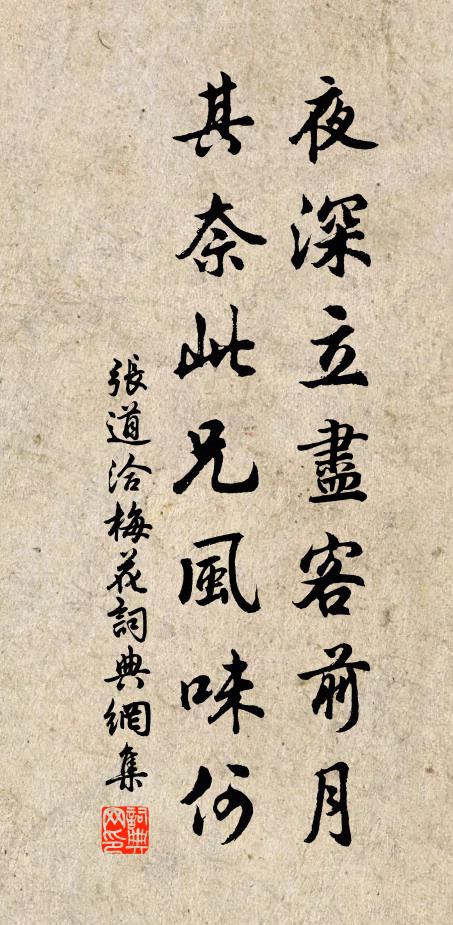 夜深立盡客前月
其奈此兄風味何
張道洽梅花詞典網集
詞典網印